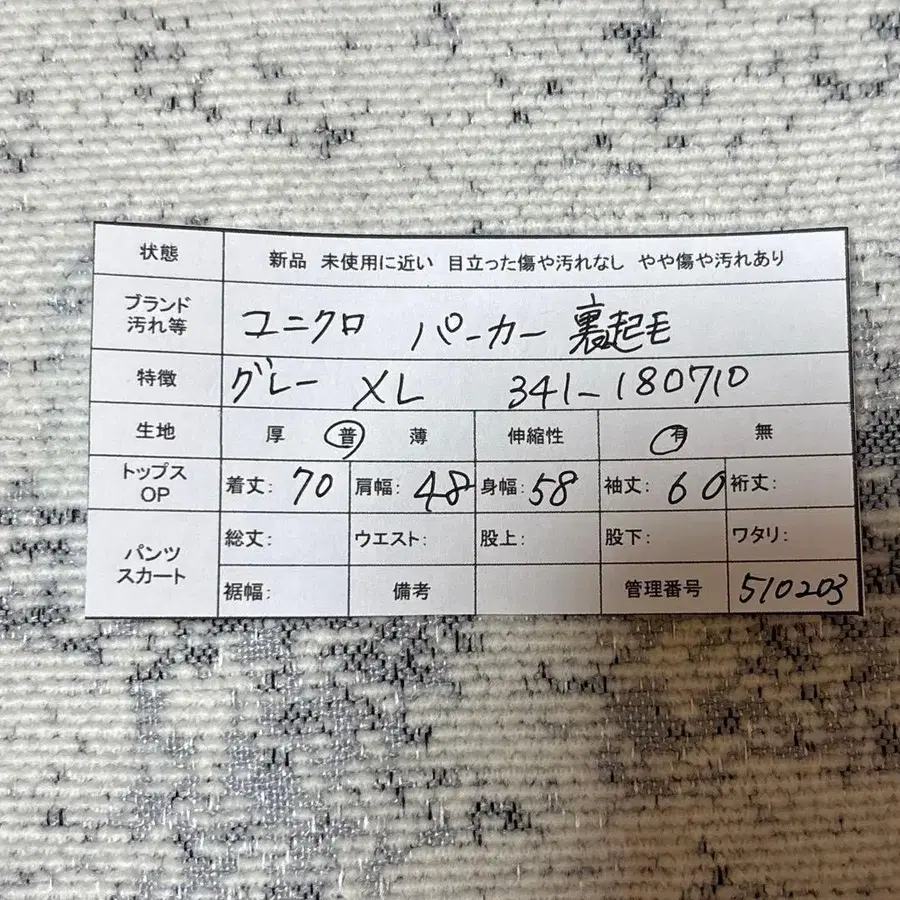 状態 新品 未使用に近い 目立った傷や汚れなし やや傷や汚れあり
ブランド
汚れ等 ユニクロ パーカー 裏起毛
特徴 グレー XL 341-180710
生地 厚 普 薄 伸縮性 有 無
トップス
OP 着丈: 70 肩幅: 48 身幅: 58 袖丈: 60 裄丈:
パンツ
スカート 総丈: ウエスト: 股上: 股下: ワタリ:
裾幅: 備考 管理番号 510203